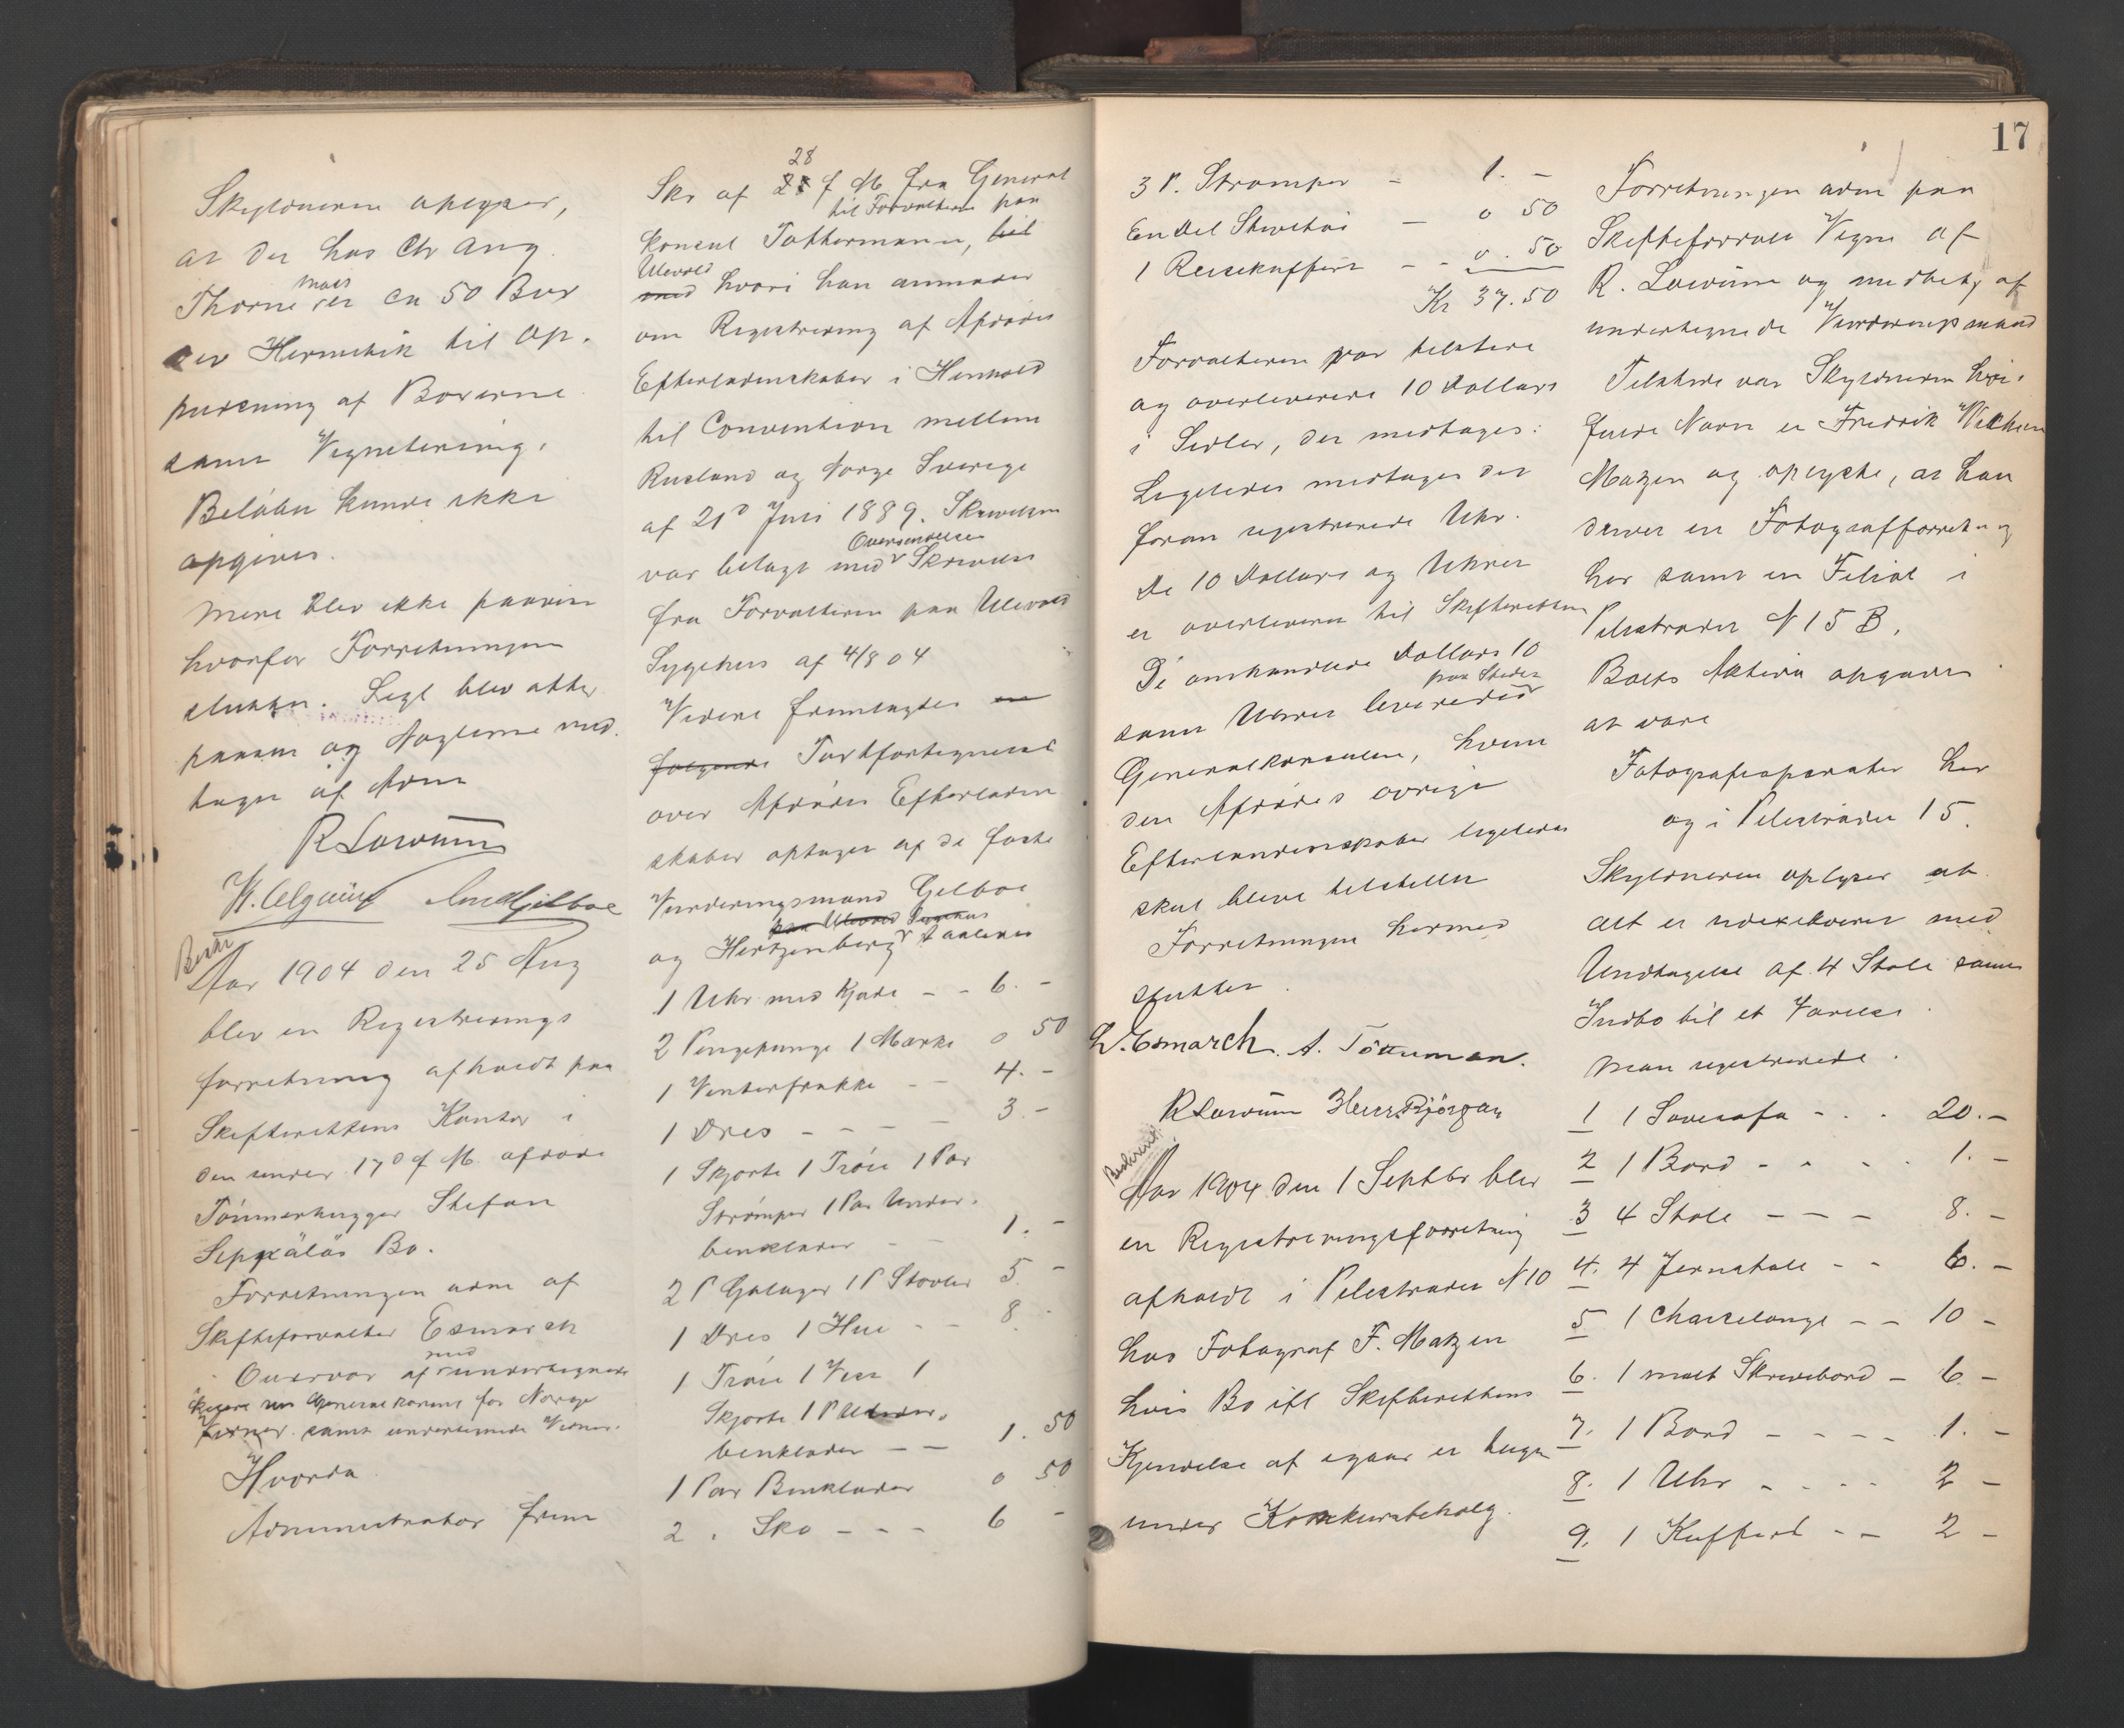 Skyldneren oplyser,
at der hos Chr Aug.
Thorne Moss er ca 50 Box
er Hermetik til Op-
pudsning af Boxerne
samt Vignetering.
Beløbet kunde ikke
opgives.
Mere blev ikke paavist
hvorfor Forretningen
sluttet. Segl blev atter
paasat og Nøglerne med-
taget af Adm
R Lowum
Aar 1904 den 25 Aug
blev en Registrerings
forretning afholdt paa
Skifterettens Kontor i
den under 17d f M. afdøde
Tømmerhugger Stefan
Seppäläs Bo.
Forretningen adm af
Skifteforvalter Esmarch
Overvar af med undertegnede
Generalkonsul for Norge
samt undertegnede Vidner.
Hvorda
Administrator frem
Skr af 28 f M. fra General
konsul Tøtterman, til Forvalteren paa
Ulevold hvori han anmoder
om Registrering af Afdødes
Efterladenskaber i Henhold
til Convention mellem
Rusland og Norge Sverige
af 21d Juni 1889. Skrivelsen
var bilagt med Oversendelses Skrivelse
fra Forvalteren paa Ulevold
Sygehus af 4/8 04
Videre fremlagdes en
følgende Fortfortegnelse
over Afdødes Efterladen
skaber optaget af de faste
Vurderingsmænd Gilboe
og Hertzenberg paa Ulevold Sygehus saaledes
1 Uhr med Kjæde - - 6. -
2 Pengepunge 1 Mærke 0 50
1 Vinterfrakke - - 4. -
1 Dres - - - - 3. -
1 Skjorte 1 Trøie 1 Par
Strømper 1 Par Under-
benklæder - - 1. -
2 P Galoger 1 P Støvler 5. -
1 Dres 1 Hue - - 8. -
1 Trøie 1 Vest 1
Skjorte 1 P Under-
benklæder - - 1. 50
1 Par Benklæder 0 50
2 " Sko - - - 6 -
17
3 P. Strømper - 1. -
En Del Skrivetøi - 0 50
1 Reisekuffert - - 0. 50
Kr 37.50
Forvalteren var tilstede
og overleverede 10 Dollars
i Sedler, der medtages:
Ligeledes medtages det
foran registrerede Uhr.
De 10 Dollars og Uhret
er overleveret til Skifteretten
De omhandlede Dollars 10
samt Uhret leveredes paa Stedet
Generalkonsulen, hvem
den Afdødes øvrige
Efterladenskaber ligeledes
skal blive tilstillet
Forretningen hermed
sluttet.
L. Esmarch. A. Tötterman.
R Lowum Herm Bjørgan
Beskrevet
Aar 1904 den 1 Septbr blev
en Registreringsforretning
afholdt i Pilestrædet N 10
hos Fotograf F. Matzen
hvis Bo ifl Skifterettens
Kjendelse af igaar er taget
under Konkursbehdlg.
Forretningen adm paa
Skifteforvalt Vegne af
R. Lowum og med bst, af
undertegnede Vurderingsmænd
Tilstede var Skyldneren hvis
fulde Navn er Fredrik Wilhelm
Matzen og oplyste, at han
driver en Fotografforretning
her samt en Filial i
Pilestrædet N 15 B.
Boets Aktiva opgaves
at være
Fotografiaparater her
og i Pilestrædet 15.
Skyldneren oplyser at
alt er udexekveret med
Undtagelse af 4 Stole samt
Indbo til et Værelse.
Man registrerede.
1 1 Sovesofa - . . 20. -
2 1 Bord - - - . 1. -
3 4 Stole - - - 8. -
4. 4 Jernstole - - 6. -
5 1 Chaiselonge - - 10 -
6. 1 malt Skrivebord - 6 -
7. 1 Bord - - - - 1. -
8. 1 Uhr - - - - 2 -
9. 1 Kuffert - - 2 -